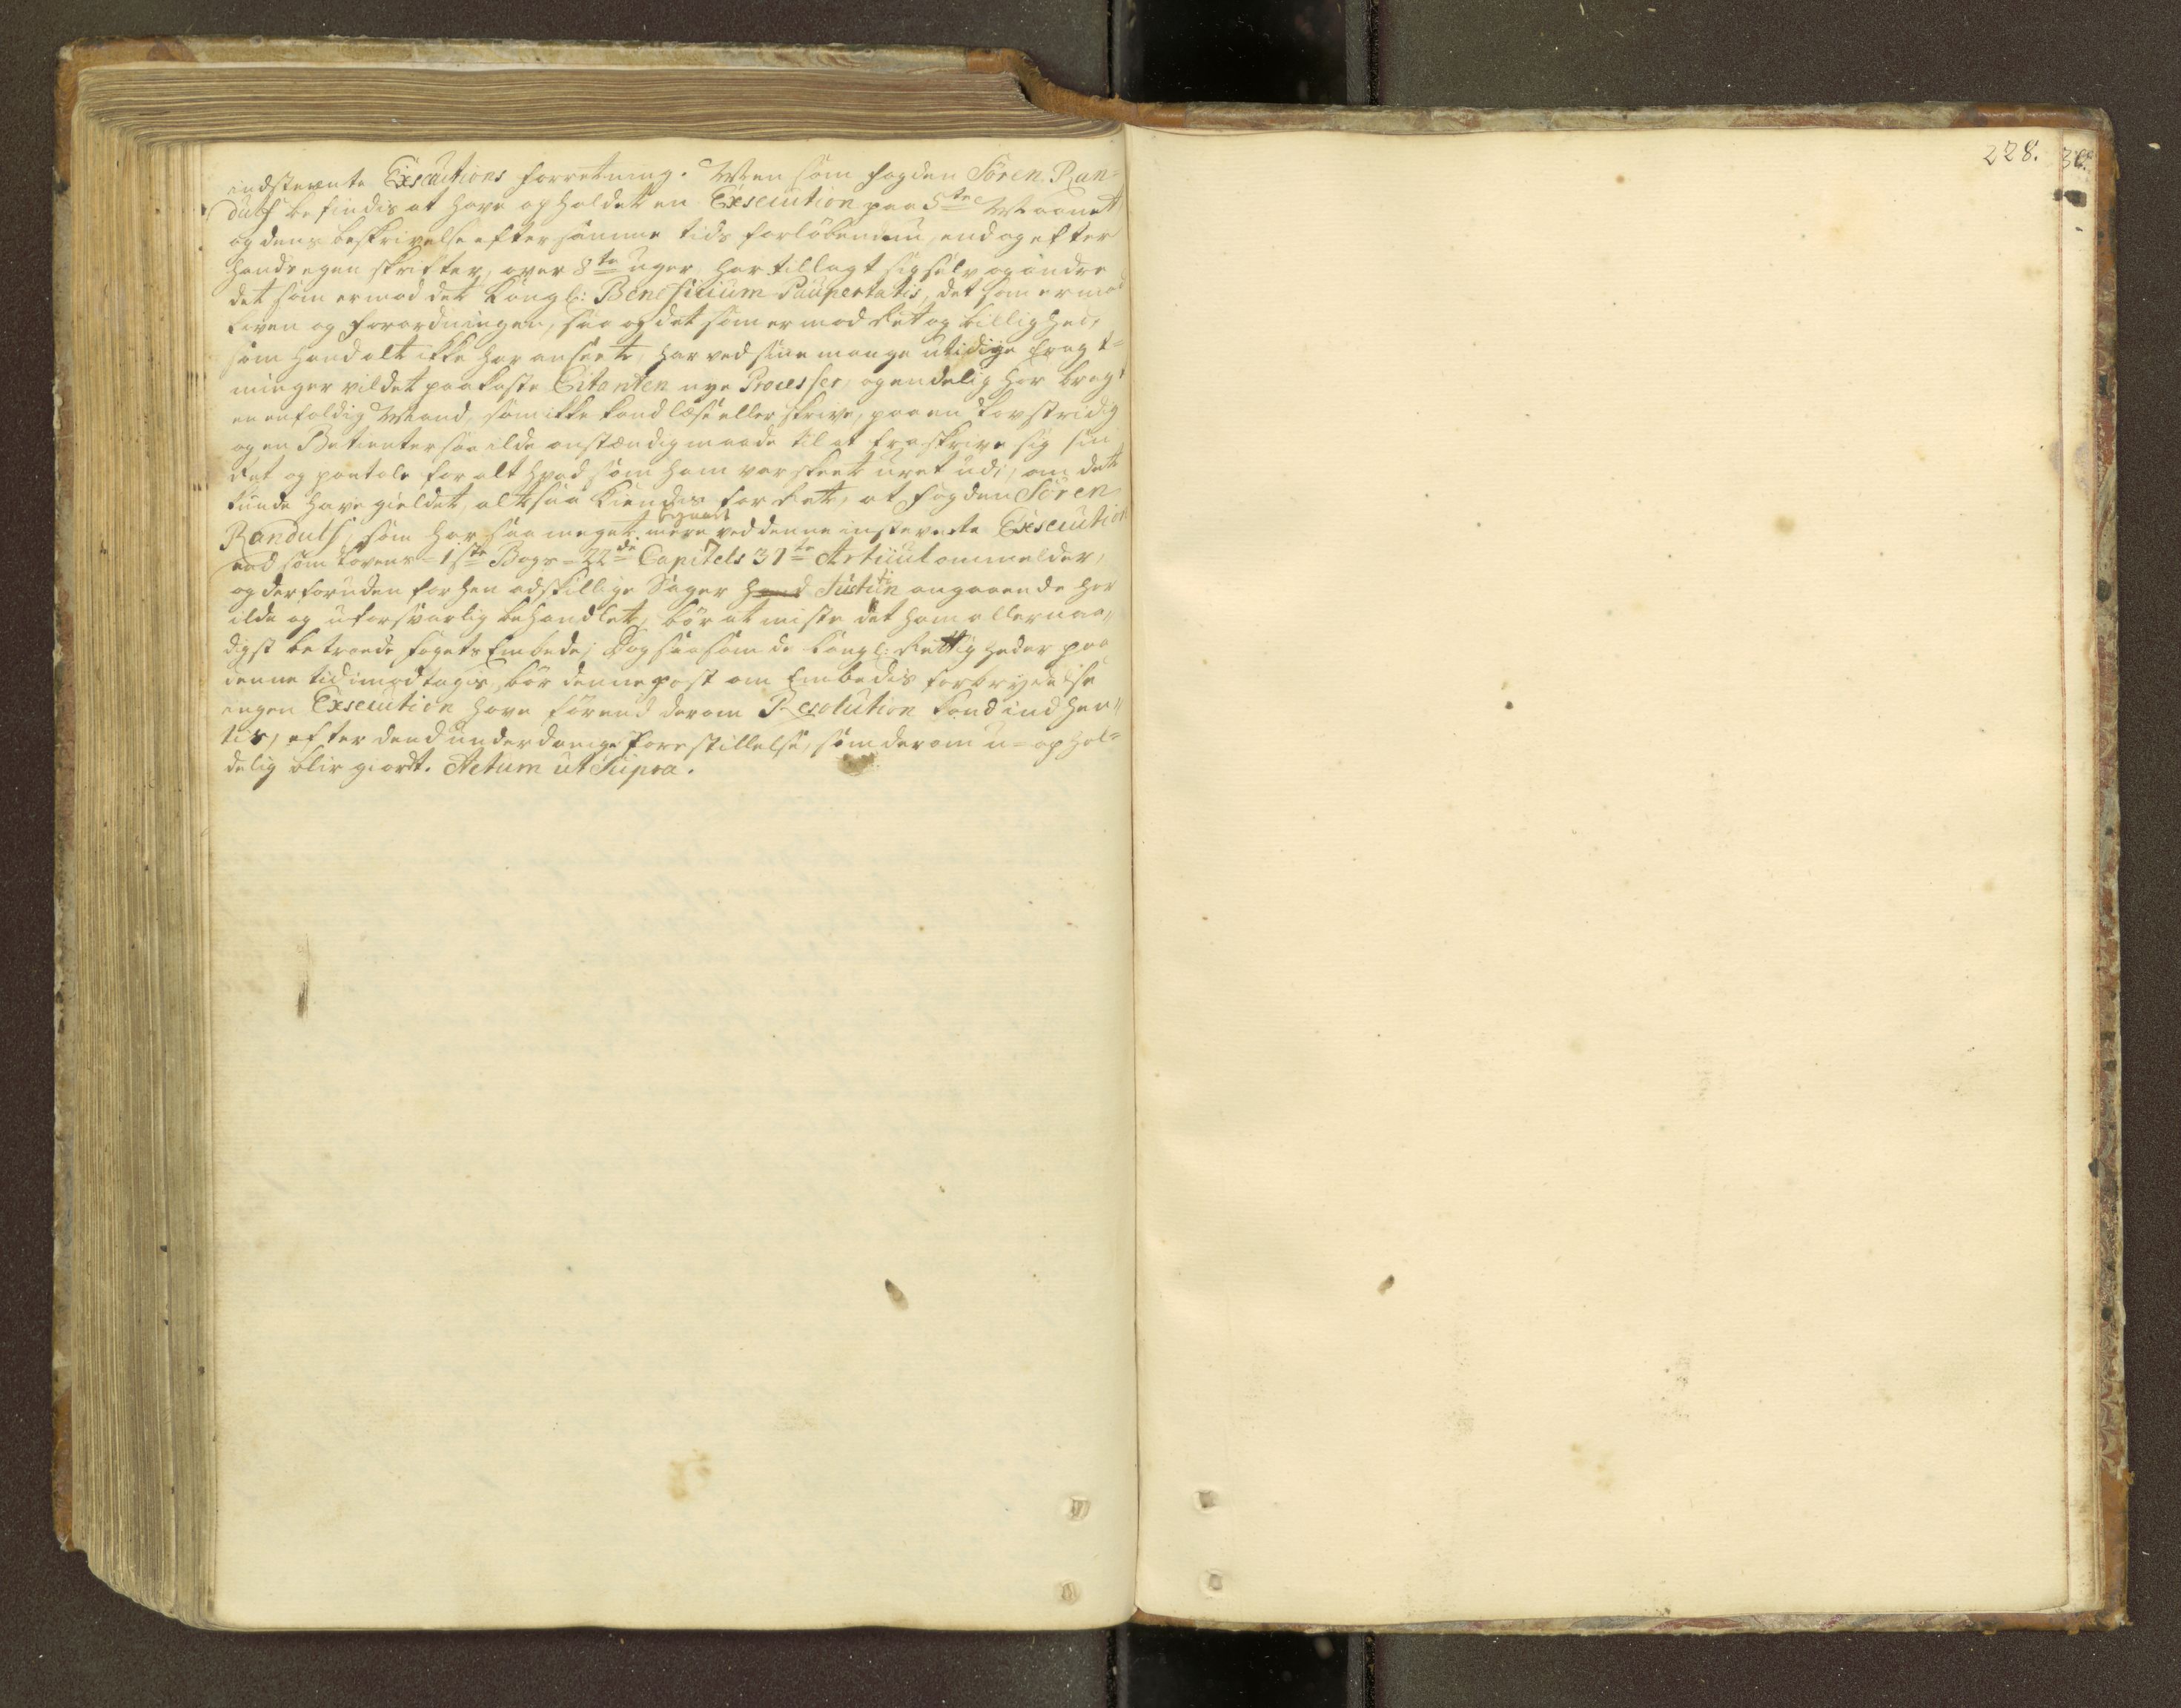 indstevnte Executions forretning. Men som fogden Sören Ran=
dulf befindis at have opholdet en Execution paa 5te Maanet
og dens beskrivelse efter samme tids forløb endnu, endog efter
hands egen skrifter, over 8te uger, har tillagt sig selv og andre
det som er mod det Kongl: Beneficium Paupertatis, det som er mod
Loven og forordningen, saa og det som er mod Ret og billighed,
som hand alt ikke har anseete, har ved sine mange utidige
ninger vildet paakaste Citanten nye Processer, og endelig har bragt
en enfoldig Mand, som ikke kand læse eller skrive, paa en Lovstridig
og en Betienter saa ilde anstændig maade til at fraskrive sig sin
Ret og paatale for alt hvad som ham var skeet uret udi, om det
kunde have gieldet, altsaa kiendes for Rett, at fogden Sören
Randulf, som har saa meget mere ved denne instevnte Execution
end som Lovens 1ste Bogs 22de Capitels 31te Articul ommelder,
og derforuden for hen adskillige Sager hand Justitien angaaende har
ilde og uforsvarlig behandlet, bör at miste det ham allernaa,
digst betroede fogets Embede; Dog saasom de Kongl: Rettigheder paa
denne tid imodtages, bör denne post om Embedis forbrydelse
ingen Execution have förend derom Resolution kand indhen,,
tes, efter dend underdanige forestillelse, som derom u=ophol=
delig blir giordt. Actum ut Supra.
228.